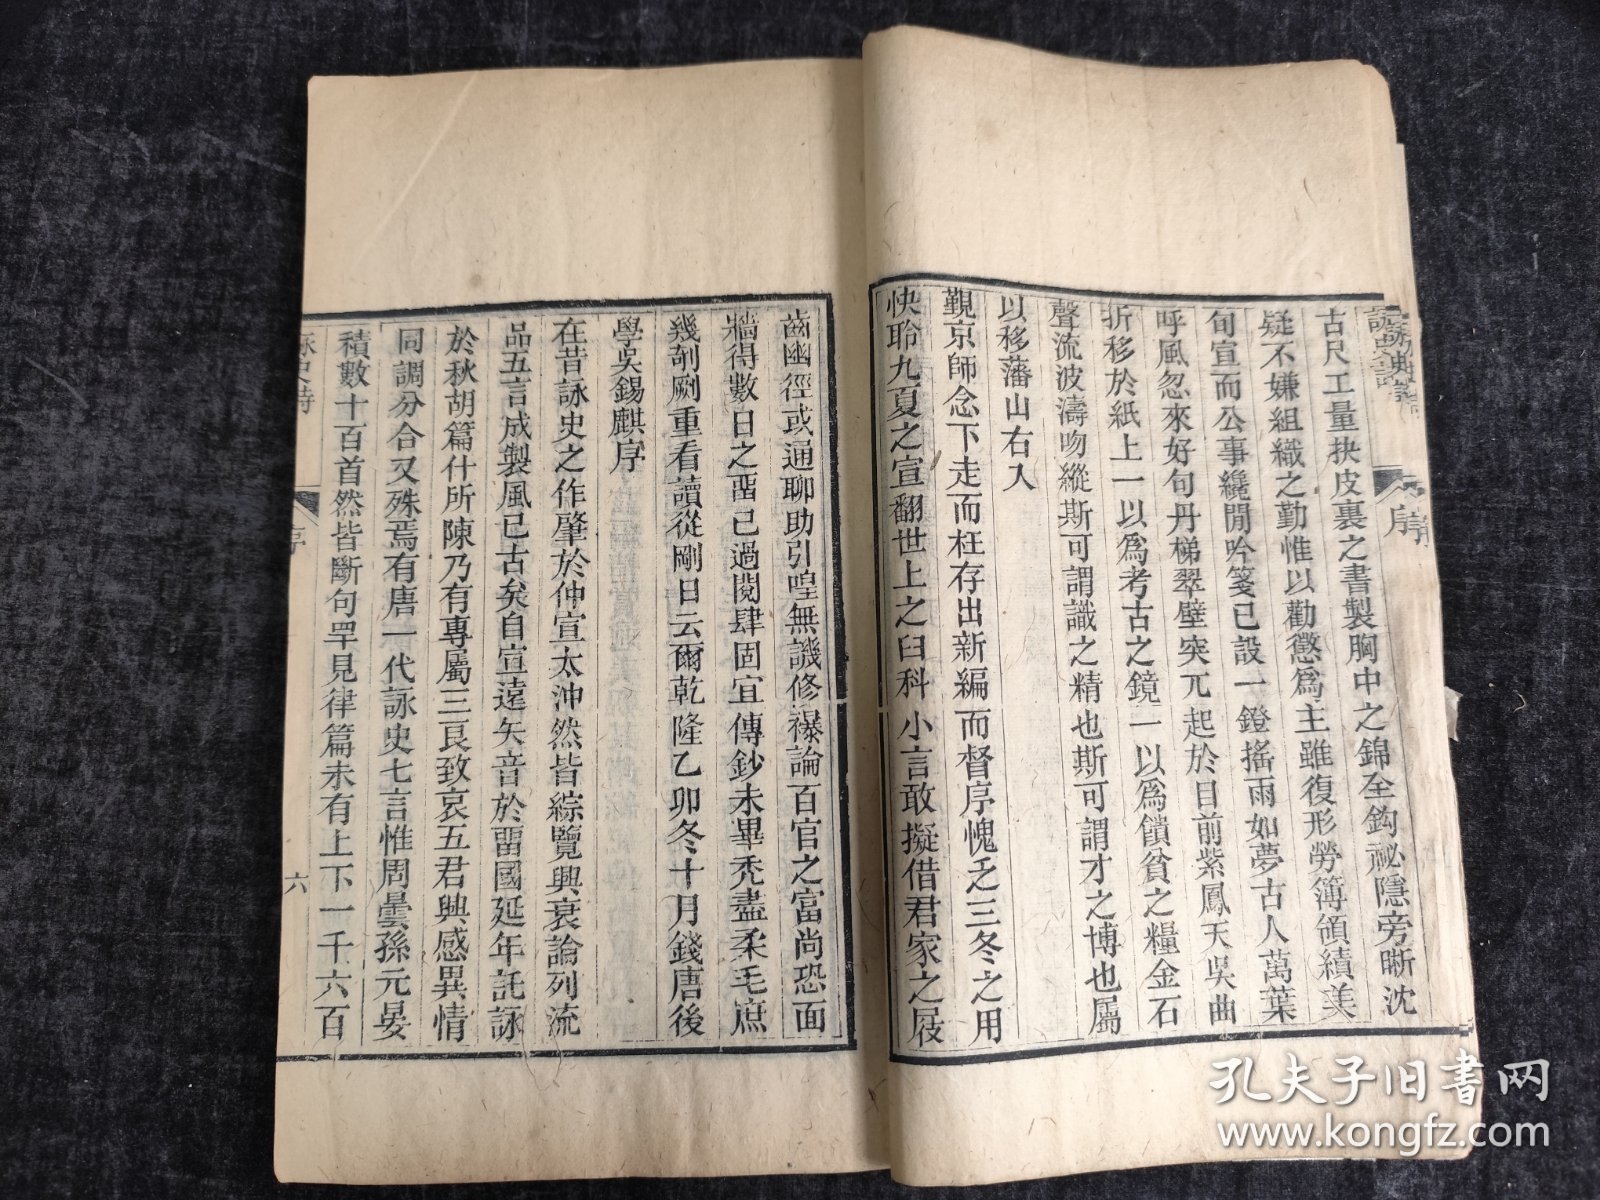 古尺工量抉皮裏之書製胸中之錦至鈎祕隱旁晰沈
疑不嫌組織之勤惟以勸懲爲主雖復形勞簿領績美
旬宣而公事纔閒吟箋已設一鐙搖雨如夢古人萬葉
呼風忽來好句丹梯翠壁突兀起於目前紫鳳天吳曲
折移於紙上一以爲考古之鏡一以爲饋貧之糧金石
聲流波濤吻縱斯可謂識之精也斯可謂才之博也屬
以移藩山右入
覲京師念下走而枉存出新編而督序愧乏三冬之用
快聆九夏之宣翻世上之臼科小言敢擬借君家之屐
齒幽徑或通聊助引喤無譏修襮論百官之富尚恐面
牆得數日之畱已過閱肆固宜傳鈔未畢禿盡柔毛庶
幾剞劂重看讀從剛日云爾乾隆乙卯冬十月錢唐後
學吳錫麒序
在昔詠史之作肇於仲宣太沖然皆綜覽興衰論列流
品五言成製風已古矣自宣遠矢音於畱國延年託詠
於秋胡篇什所陳乃有專屬三良致哀五君興感異情
同調分合又殊焉有唐一代詠史七言惟周曇孫元晏
積數十百首然皆斷句罕見律篇未有上下一千六百
詠史詩
序
六
孔夫子旧书网
www.kongfz.com